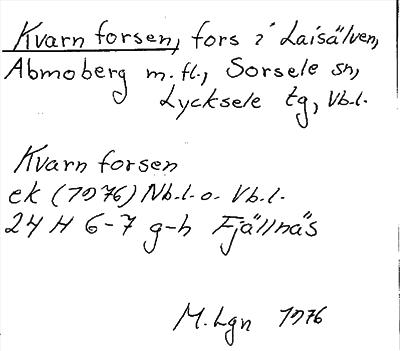 Kvarnforsen, fors i Laisälven,
Abmoberg m.fl., Sorsele sn,
Lycksele tg, Vb.l.
Kvarnforsen
ek (1976) Nb.l. o. Vb.l.
24 H 6-7 g-h Fjällnäs
M. Lgn 1976